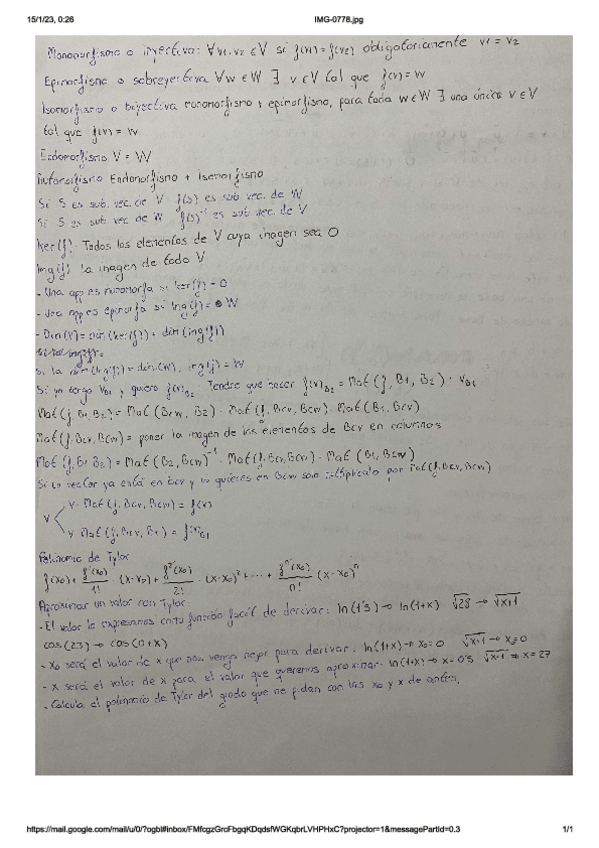 15/1/23, 0:26
IMG-0778.jpg
Monomorfismo o inyectiva: ∀v1,v2 ∈ V si f(v1)=f(v2) obligatoriamente v1 = v2
Epimorfismo o sobreyectiva ∀w ∈ W ∃ v ∈ V tal que f(v) = w
Isomorfismo o biyectiva monomorfismo y epimorfismo, para toda w ∈ W ∃ una única v ∈ V
tal que f(v) = w
Endomorfismo V = W
Automorfismo Endomorfismo + Isomorfismo
Si S es sub. vec. de V f(S) es sub vec. de W
Si S es sub. vec de W f(S)⁻¹ es sub vec. de V
Ker(f): Todos los elementos de V cuya imagen sea 0
Img(f): la imagen de todo V
- Una app es monomorfa si Ker(f) = 0
- Una app es epimorfa si Img(f) = W
- Dim(V) = dim(Ker(f)) + dim(img(f))
Si la dim(Img(f)) = dim(W), img(f) = W
Si yo tengo VB1 y quiero f(v)B2. Tendré que hacer f(v)B2 = Mat(f, B1, B2) · VB1
Mat(f, B1, B2) = Mat(Bcw, B2) · Mat(f, Bcv, Bcw) · Mat(B1, Bcv)
Mat(f, Bcv, Bcw) = poner la imagen de los elementos de Bcv en columnas
Mat(f, B1, B2) = Mat(B2, Bcw)⁻¹ · Mat(f, Bcv, Bcw) · Mat(B1, Bcw)
Si un vector ya está en bcv y lo quieres en Bcw multiplícalo por Mat(f, Bcv, Bcw)
V · Mat(f, Bcv, Bcw) = f(v)
V
V · Mat(f, Bcv, B1) = f(v)B1
Polinomio de Tylor
f(x0) + f'(x0)/1! · (x-x0) + f²(x0)/2! · (x-x0)² + ... + fⁿ(x0)/n! (x-x0)ⁿ
Aproximar un valor con Tylor:
- El valor lo expresamos en tu función fácil de derivar: ln(1'5) → ln(1+x) √28 → √x+1
cos(23) → cos(0+x)
- x0 será el valor de x que nos venga mejor para derivar. ln(1+x) → x0=0 √x+1 → x=0
- x será el valor de x para el valor que queremos aproximar. ln(1+x) → x = 0'5 √x+1 → x = 27
- Calcula el polinomio de Tylor del grado que me pidan con las x0 y x de antes.
https://mail.google.com/mail/u/0/?ogbl#inbox/FMfcgzGrcFbgqKDqdsfWGKqbrLVHPHxC?projector=1&messagePartId=0.3
1/1